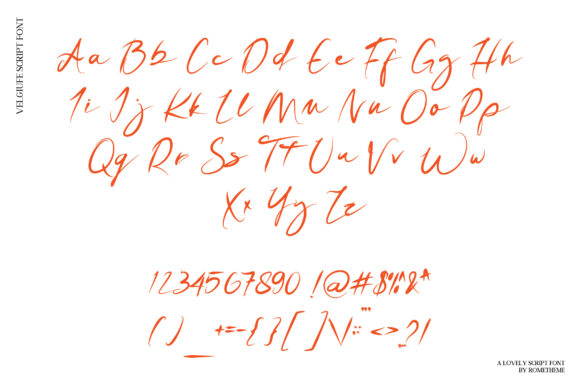 VELGIUFE SCRIPT FONT
Aa Bb Cc Dd Ee Ff Gg Hh
Ii Jj Kk Ll Mm Nn Oo Pp
Qq Rr Ss Tt Uu Vv Ww
Xx Yy Zz
1234567890 !@#$%^&*
() _ +=-{}[ ]\/:; <>?/
A LOVELY SCRIPT FONT
BY ROMETHEME